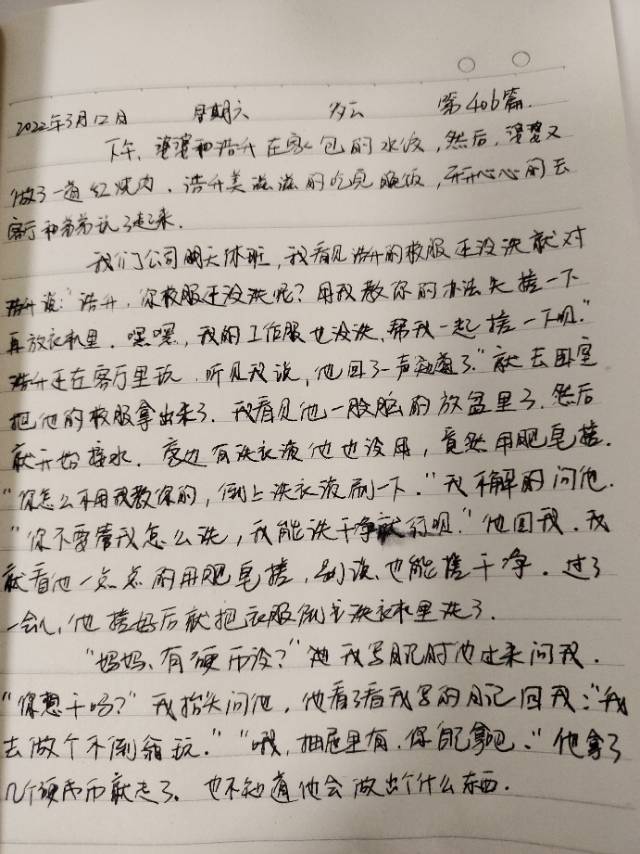 2022年3月12日 星期六 多云 第406篇.
下午,婆婆和浩升在家包的水饺,然后,婆婆又
做了一道红烧肉.浩升美滋滋的吃完晚饭,开开心心的去
客厅和弟弟玩了起来.
我们公司明天休班,我看见浩升的校服还没洗就对
浩升说:"浩升,你校服还没洗呢?用我教你的办法先搓一下
再放衣机里.嘿嘿,我的工作服也没洗,帮我一起搓一下呗."
浩升还在客厅里玩,听见我说,他回了一声"知道了."就去卧室
把他的校服拿出来了.我看见他一股脑的放盆里了,然后
就开始接水.旁边有洗衣液他也没用,竟然用肥皂搓.
"你怎么不用我教你的,倒上洗衣液刷一下."我不解的问他.
"你不要管我怎么洗,我能洗干净就行呗."他回我.我
就看他一点点的用肥皂搓,别说,也能搓干净.过了
一会儿,他搓好后就把衣服放到洗衣机里洗了.
"妈妈,有硬币没?"当我写日记时他过来问我.
"你想干吗?"我抬头问他,他看了看我写的日记回我:"我
去做个不倒翁玩.""哦,抽屉里有,你自己拿吧."他拿了
几个硬币就走了.也不知道他会做出个什么东西.